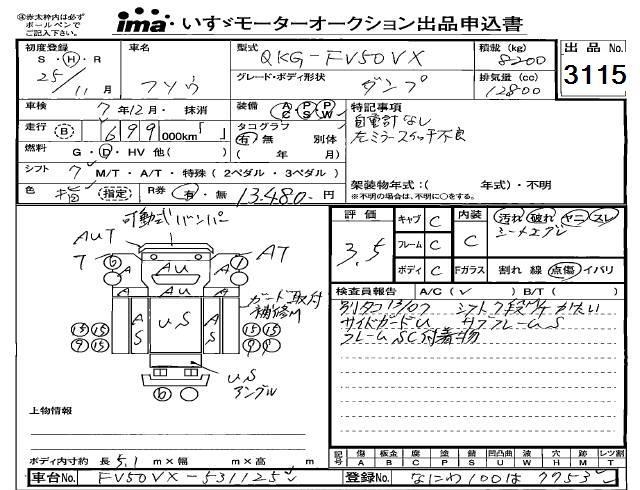 ㊟赤太枠内は必ず
ボールペンで
ご記入下さい。
ima いすゞモーターオークション出品申込書
初度登録
S・H・R
25/11月
車名
フソウ
型式
QKG-FV50VX
積載 (kg)
8200
出品 No.
3115
グレード・ボディ形状
ダンプ
排気量 (cc)
12800
車検 7年12月・抹消
装備 AC PS PW
特記事項
自重計なし
左ミラースイッチ不良
走行 B 699 000km「 」
タコグラフ 別体
有 無 ( 年 月)
燃料 G・D・HV 他( )
シフト 7 M/T・A/T・特殊 (2ペダル・3ペダル)
架装物年式:( 年式)・不明
※不明の場合は、不明に○をする。
色 橙 指定 R券 有・無 13,480-円
可動式バンパー
AUT
T AT
6 7
AU
A A
A S US A S
ガード取付
補修M
15 15 15 15
9 15 9 9
US
アングル
6
評価
3.5
キャブ C
フレーム C
ボディ C
内装 C
Fガラス
汚れ 破れ ヤニ スレ
シートエグレ
割れ 線 点傷 イバリ
検査員報告 A/C(✓) B/T( )
別タコ13/07 シフト7段MT かたい
サイドガードU サブフレームS
フレームSC付着物
上物情報
ボディ内寸約 長 5.1 m×幅 m×高 m
記号 傷 A 板金 B 腐 C 塗 P 錆 S 凹凸曲 U 波 W 穴 H 跡 M レツ割 T
車台No. FV50VX-531125
登録No. なにわ100は7753